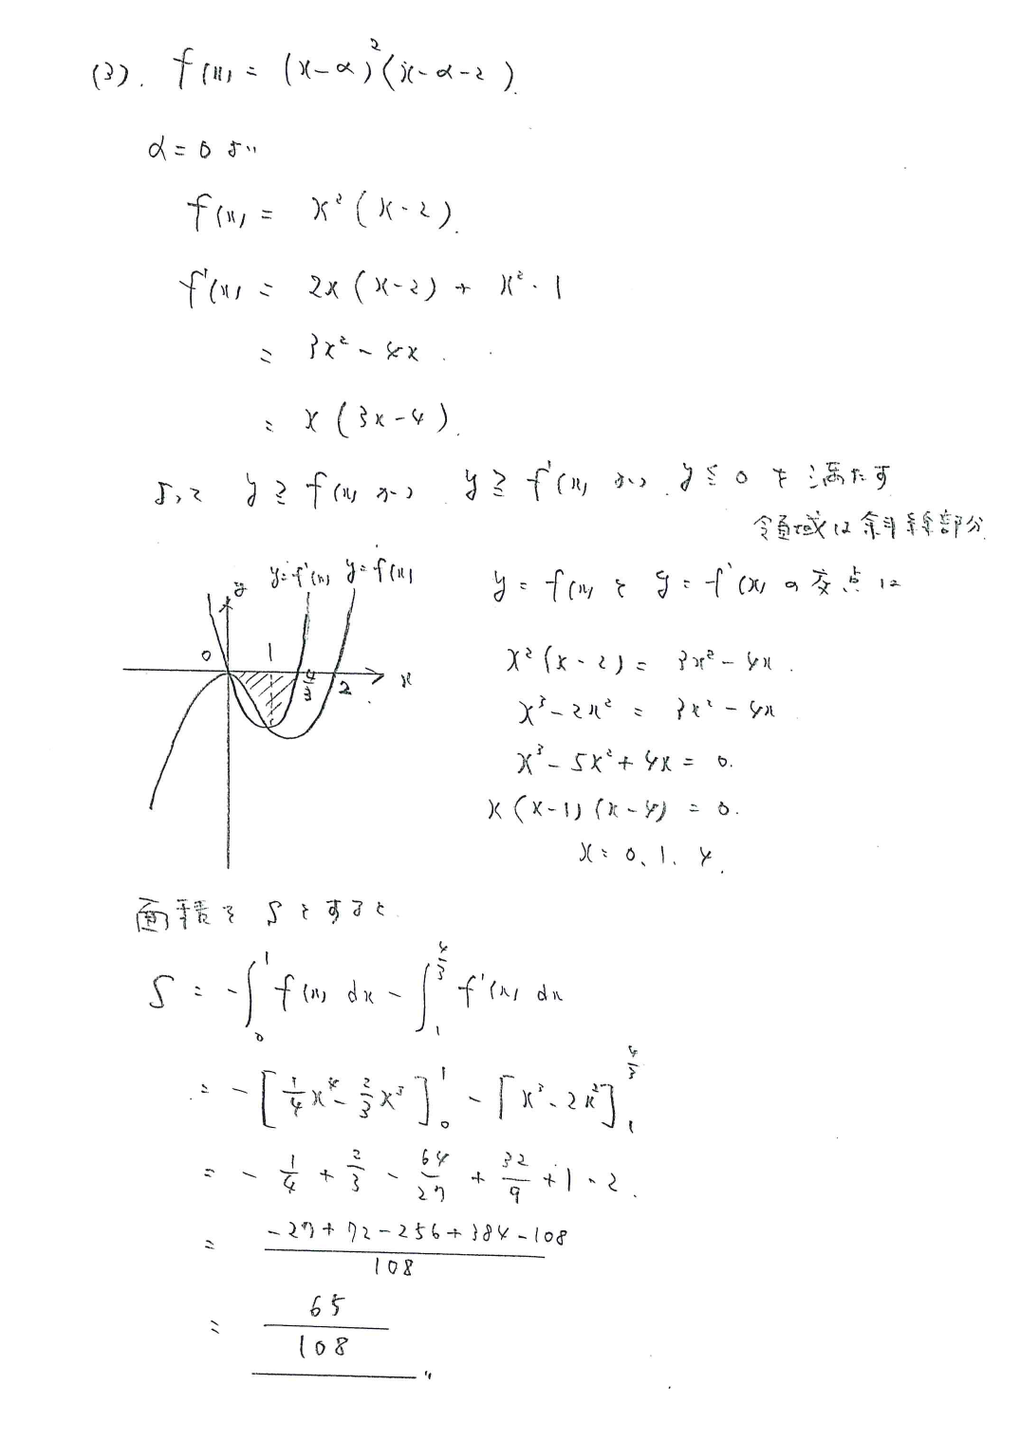 (3). f(x) = (x-α)²(x-α-2).
α=0 より
f(x) = x²(x-2).
f'(x) = 2x(x-2) + x²・1
= 3x² - 4x.
= x(3x-4).
よって y≧f(x) かつ y≧f'(x) かつ y≦0 を満たす
領域は斜線部分
y=f'(x) y=f(x)
y
0 1 4/3 2 x
y=f(x) と y=f'(x) の交点は
x²(x-2) = 3x²-4x.
x³-2x² = 3x²-4x
x³-5x²+4x = 0.
x(x-1)(x-4) = 0.
x=0, 1, 4.
面積を S とすると
S = -∫₀¹ f(x) dx - ∫₁^{4/3} f'(x) dx
= -[1/4 x⁴ - 2/3 x³]₀¹ - [x³-2x²]₁^{4/3}
= - 1/4 + 2/3 - 64/27 + 32/9 + 1 - 2.
= (-27+72-256+384-108)/108
= 65/108 〃